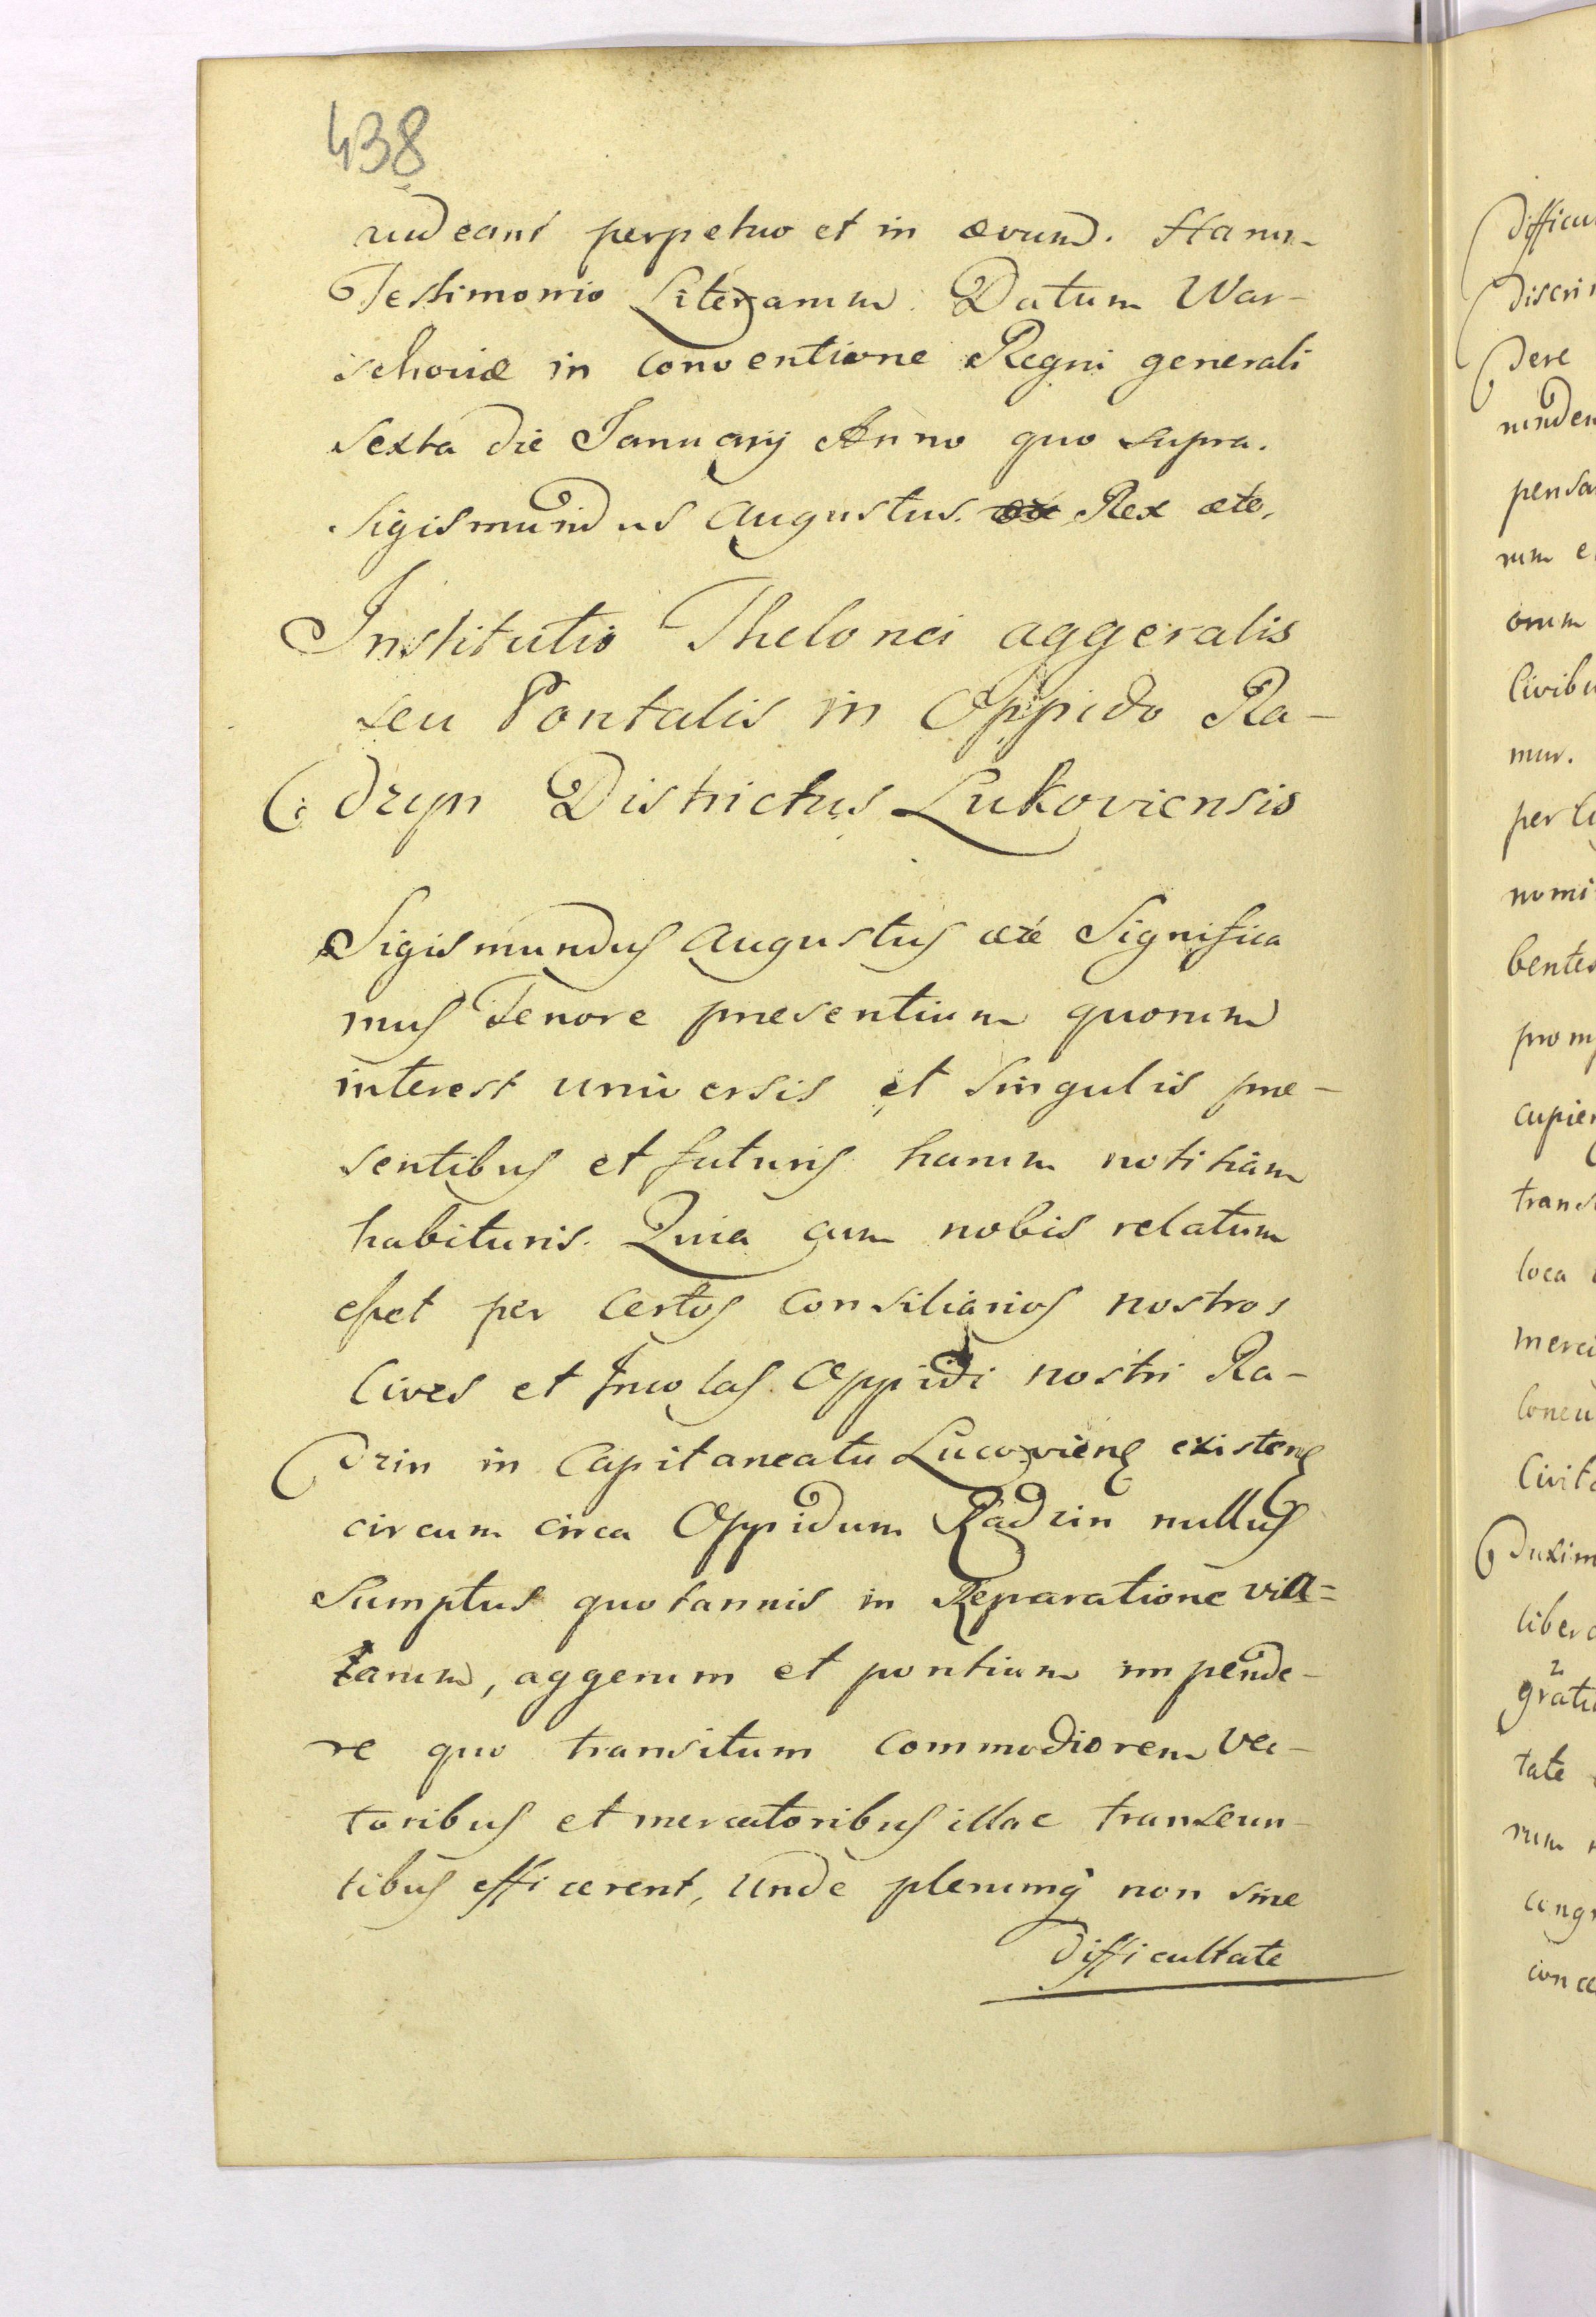 438
udeant perpetuo et in ævum. Harum
Testimonio Literarum. Datum War-
schoviæ in conventione Regni generali
sexta die Januarij Anno quo supra.
Sigismundus Augustus. Rex etc.
Institutio Thelonei aggeralis
seu Pontalis in Oppido Ra-
dzyn Districtus Lukoviensis
Sigismundus Augustus etc Significa
mus Tenore presentium quorum
interest universis et singulis pre-
sentibus et futuris harum notitiam
habituris. Quia cum nobis relatum
esset per certos Consiliarios nostros
Cives et Incolas Oppidi nostri Ra-
dzin in Capitaneatu Lucovien existen
circum circa Oppidum Radzin nullus
Sumptus quotannis in Reparatione via-
rum, aggerum et pontium impende-
re quo transitum commodiorem Vec-
toribus et mercatoribus illac transeun-
tibus efficerent, Unde plerumq non sine
difficultate
Difficul
discri
dere
pensa
rum e
orum
Civibu
mur.
per
nomi
bentes
prom
cupien
trans
loca
merci
loneu
Civita
duxim
libera
gratu
tate
rum
congr
conce